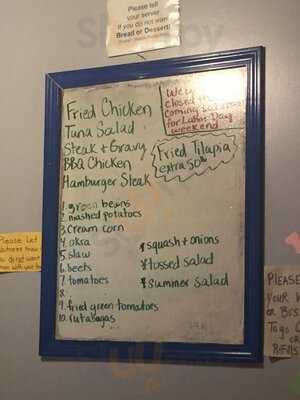 Please tell
your server
if you do not want
Bread or Dessert!
Fried Chicken
Tuna Salad
Steak + Gravy
BBQ Chicken
Hamburger Steak
closed
coming
for Labor Day
weekend
Fried Tilapia
extra 50¢
1. green beans
2. mashed potatoes
3. cream corn
4. okra
5. slaw
6. beets
7. tomatoes
8.
9. fried green tomatoes
10. rutabagas
* squash + onions
* tossed salad
* summer salad
Please Let
do not want
PLEASE
YOUR
or
To go
OR
Refills